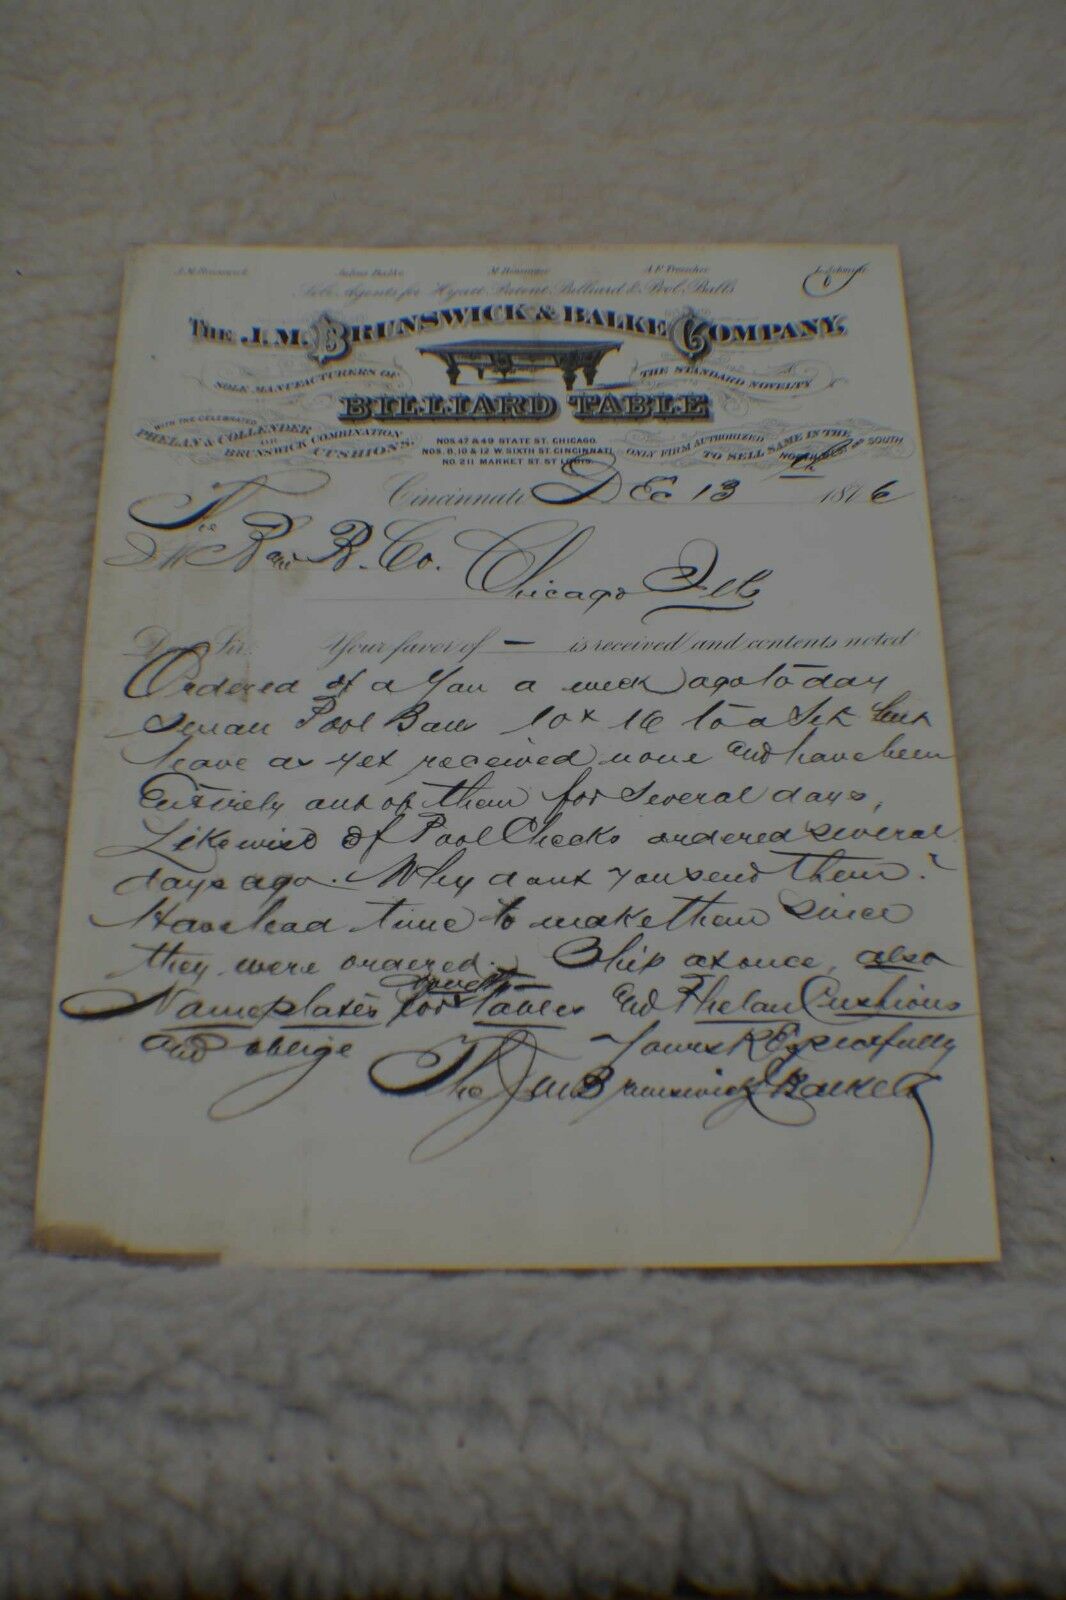 J. M. Brunswick Julius Balke A. F. Troescher
Sole Agents for Hyatt Patent Billiard & Pool Balls
THE J. M. BRUNSWICK & BALKE COMPANY,
SOLE MANUFACTURERS OF THE STANDARD NOVELTY
BILLIARD TABLE
WITH THE CELEBRATED
PHELAN & COLLENDER OR
BRUNSWICK COMBINATION
CUSHIONS.
NOS. 47 & 49 STATE ST. CHICAGO.
NOS. 8, 10 & 12 W. SIXTH ST. CINCINNATI
NO 211 MARKET ST. ST LOUIS.
ONLY FIRM AUTHORIZED
TO SELL SAME IN THE
SOUTH
Cincinnati DEc 13 1876
The
B. Co. Chicago Ills
D Sir. Your favor of — is received and contents noted
Ordered of a you a week ago to day
Pool Balls 10 x 16 to a Set but
have as yet received none and have been
Entirely out of them for several days,
Likewise of Pool Checks ordered several
days ago. Why dont you send them?
Have had time to make them since
they were ordered. Ship at once, also
Nameplates for Tables and Phelan Cushions
and oblige Yours REspectfully
The J M Brunswick & Balke Co